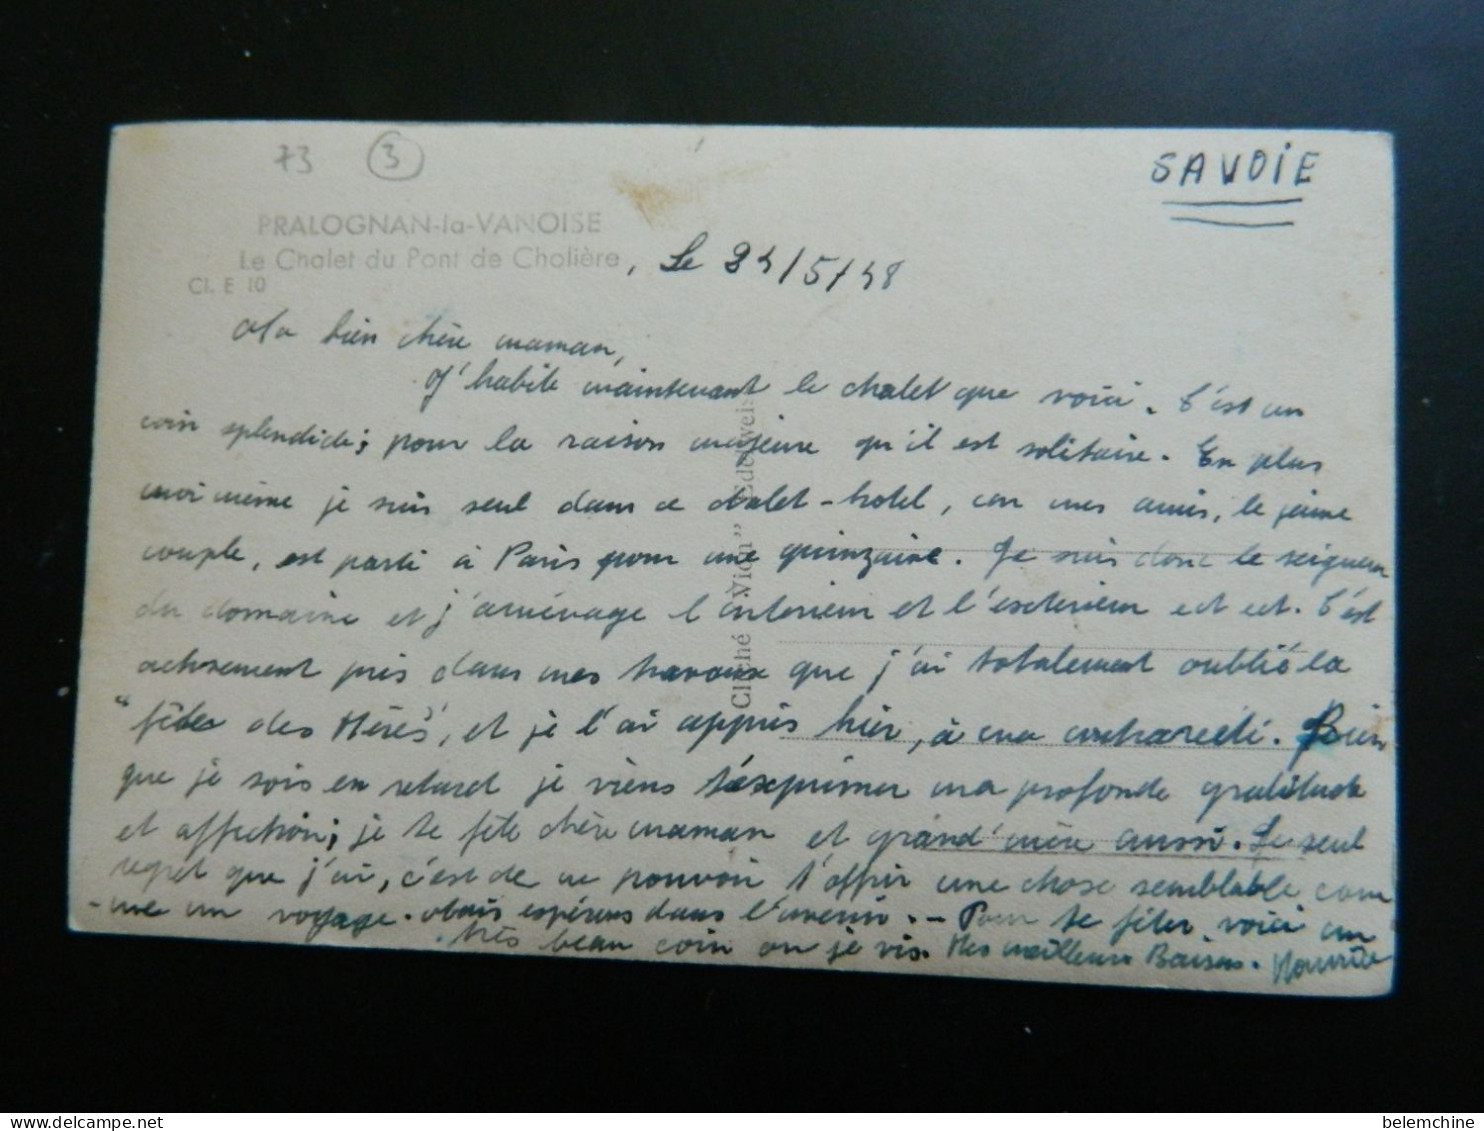 73 3
SAVOIE
PRALOGNAN-la-VANOISE
Le Chalet du Pont de Cholière
Cl. E 10
, Le 24/5/48
Ma bien chère maman,
J'habite maintenant le chalet que voici. C'est un
coin splendide; pour la raison majeure qu'il est solitaire. En plus
moi même je suis seul dans ce chalet-hotel, car mes amis, le jeune
couple, est parti à Paris pour une quinzaine. Je suis donc le seigneur
du domaine et j'aménage l'interieur et l'exterieur ect ect. C'est
pris dans mes travaux que j'ai totalement oublié la
"fête des Mères", et je l'ai appris hier, à ma Bien
que je sois en retard je viens t'exprimer ma profonde gratitude
et affection; je te fête chère maman et grand'mère aussi. Le seul
regret que j'ai, c'est de ne pouvoir t'offrir une chose semblable com
-me un voyage. Mais espérons dans l'avenir. - Pour te fêter, voici un
très beau coin où je vis. Mes meilleurs Baisers. Maurice
Cliché "Vion" Edelweis
belemchine